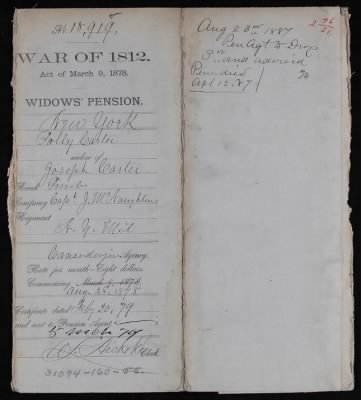 18,919,
WAR OF 1812.
Act of March 9, 1878.
WIDOWS' PENSION.
New York
Polly Carter
widow of
Joseph Carter
Rank Private
Company Capt. J. McNaughton
Regiment
N. Y. Mil
Canandaigua Agency.
Rate per month—Eight dollars.
Commencing March 9, 1878.
Aug. 25, 1878
Certificate dated Feby 20, 79
and sent to Pension Agent
5 79
Clerk.
31094-160-55.
Aug 23rd 1887
Pen Agt to Drop
3rd and advised
Pens. died
Apl 12. 87